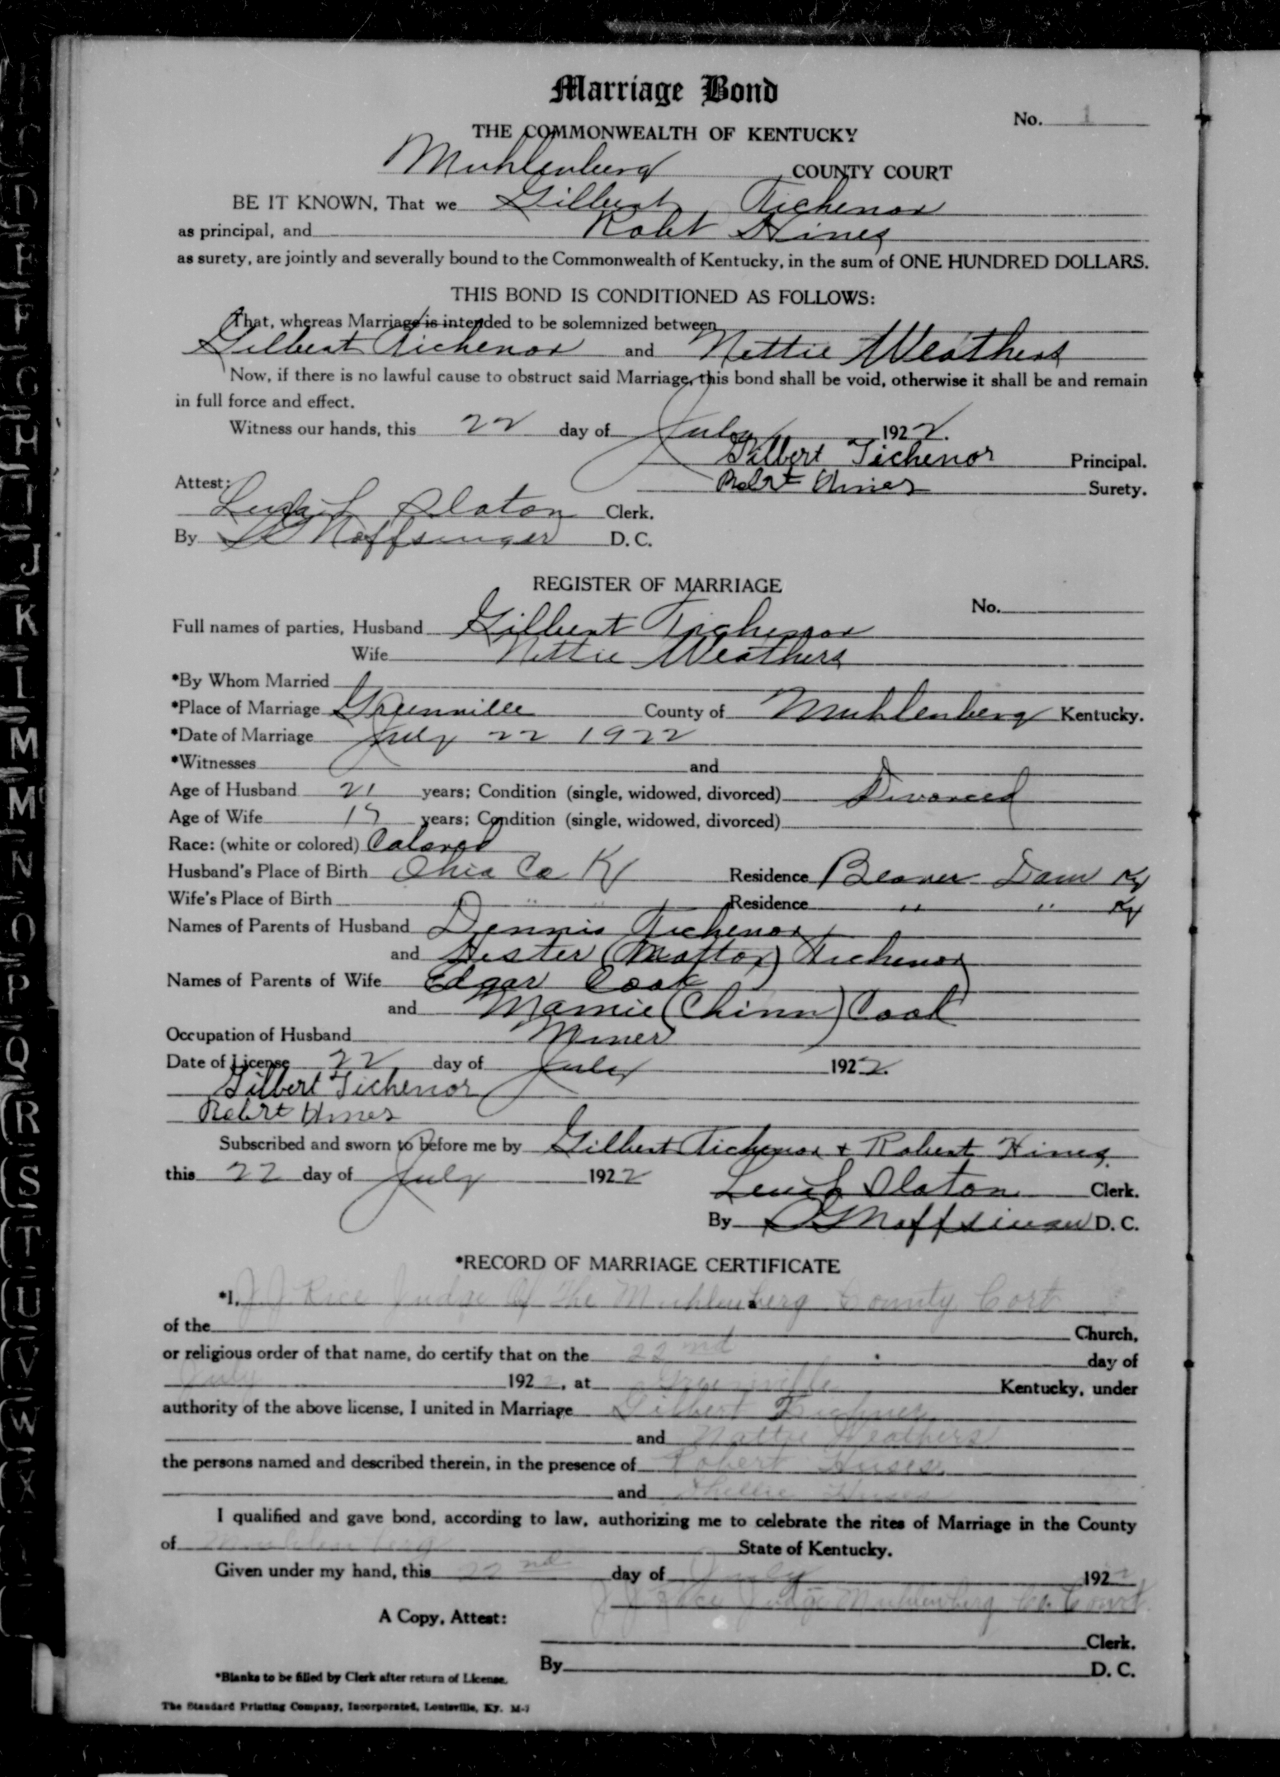 Marriage Bond
No. 1
THE COMMONWEALTH OF KENTUCKY
Muhlenberg COUNTY COURT
BE IT KNOWN, That we Gilbert Tichenor
as principal, and Robt Hines
as surety, are jointly and severally bound to the Commonwealth of Kentucky, in the sum of ONE HUNDRED DOLLARS.
THIS BOND IS CONDITIONED AS FOLLOWS:
That, whereas Marriage is intended to be solemnized between
Gilbert Tichenor and Nettie Weathers
Now, if there is no lawful cause to obstruct said Marriage, this bond shall be void, otherwise it shall be and remain
in full force and effect.
Witness our hands, this 22 day of July 1922.
Gilbert Tichenor Principal.
Attest: Robrt Hines Surety.
Slaton Clerk.
By Noffsinger D. C.
REGISTER OF MARRIAGE
No.
Full names of parties, Husband Gilbert Tichenor
Wife Nettie Weathers
*By Whom Married
*Place of Marriage Greenville County of Muhlenberg Kentucky.
*Date of Marriage July 22 1922
*Witnesses and
Age of Husband 21 years; Condition (single, widowed, divorced) Divorced
Age of Wife years; Condition (single, widowed, divorced)
Race: (white or colored) Colored
Husband's Place of Birth Ohio Co Ky Residence Beaver Dam Ky
Wife's Place of Birth " " Residence " " Ky
Names of Parents of Husband Dennis Tichenor
and Hester Tichenor
Names of Parents of Wife Edgar Cook
and Mamie (Chinn) Cook
Occupation of Husband Miner
Date of License 22 day of July 1922.
Gilbert Tichenor
Robrt Hines
Subscribed and sworn to before me by Gilbert Tichenor + Robert Hines
this 22 day of July 1922
Slaton Clerk.
By Noffsinger D. C.
*RECORD OF MARRIAGE CERTIFICATE
*I, J. J. Rice Judge Of The Muhlenberg County Cort
of the Church,
or religious order of that name, do certify that on the 22nd day of
July 1922, at Greenville Kentucky, under
authority of the above license, I united in Marriage Gilbert
and Nattie Weathers
the persons named and described therein, in the presence of Robert
and
I qualified and gave bond, according to law, authorizing me to celebrate the rites of Marriage in the County
of Muhlenberg State of Kentucky.
Given under my hand, this 22nd day of July 1922
J. J. Rice Judge Muhlenberg Co. Court
A Copy, Attest:
Clerk.
By D. C.
*Blanks to be filled by Clerk after return of License.
The Standard Printing Company, Incorporated, Louisville, Ky. M-7
D
E
F
G
H
I
J
K
L
M
Mc
N
O
P
Q
R
S
T
U
V
W
X